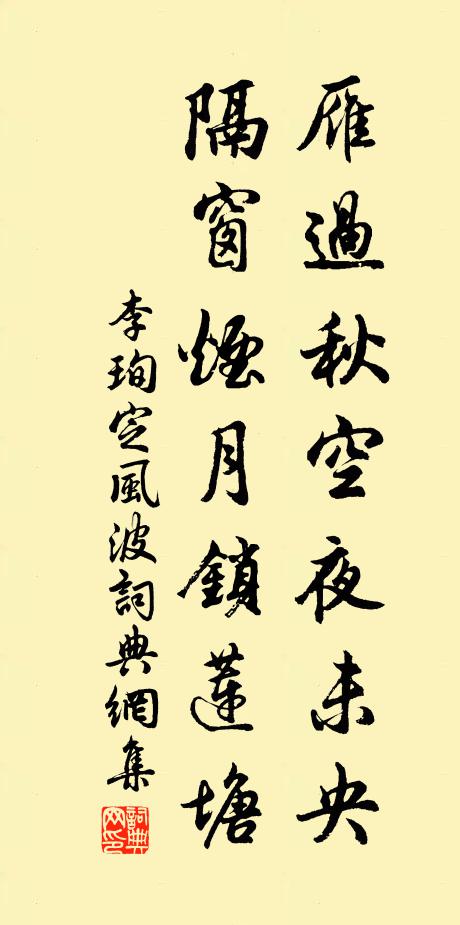 雁過秋空夜未央
隔窗煙月鎖蓮塘
李珣定風波詞典網集
詞典網印